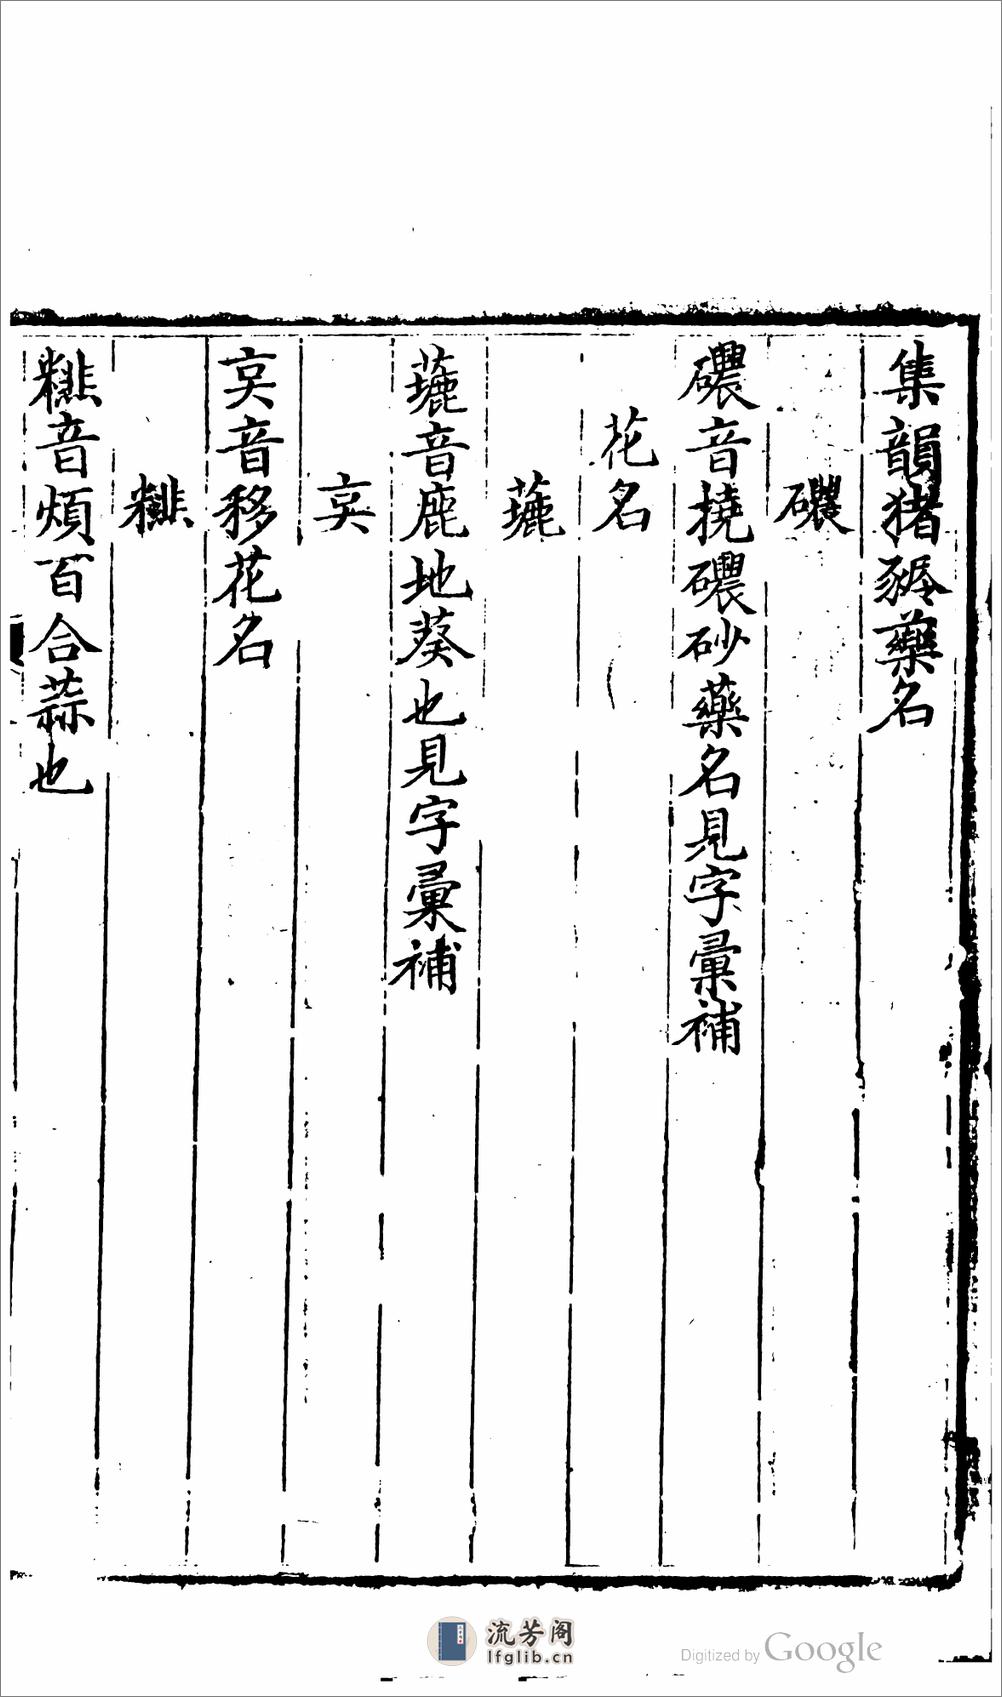 集韻猪藥名
音撓砂藥名見字彙補
花名
音鹿地葵也見字彙補
音移花名
音煩百合蒜也
流芳阁
lfglib.cn
Digitized by Google